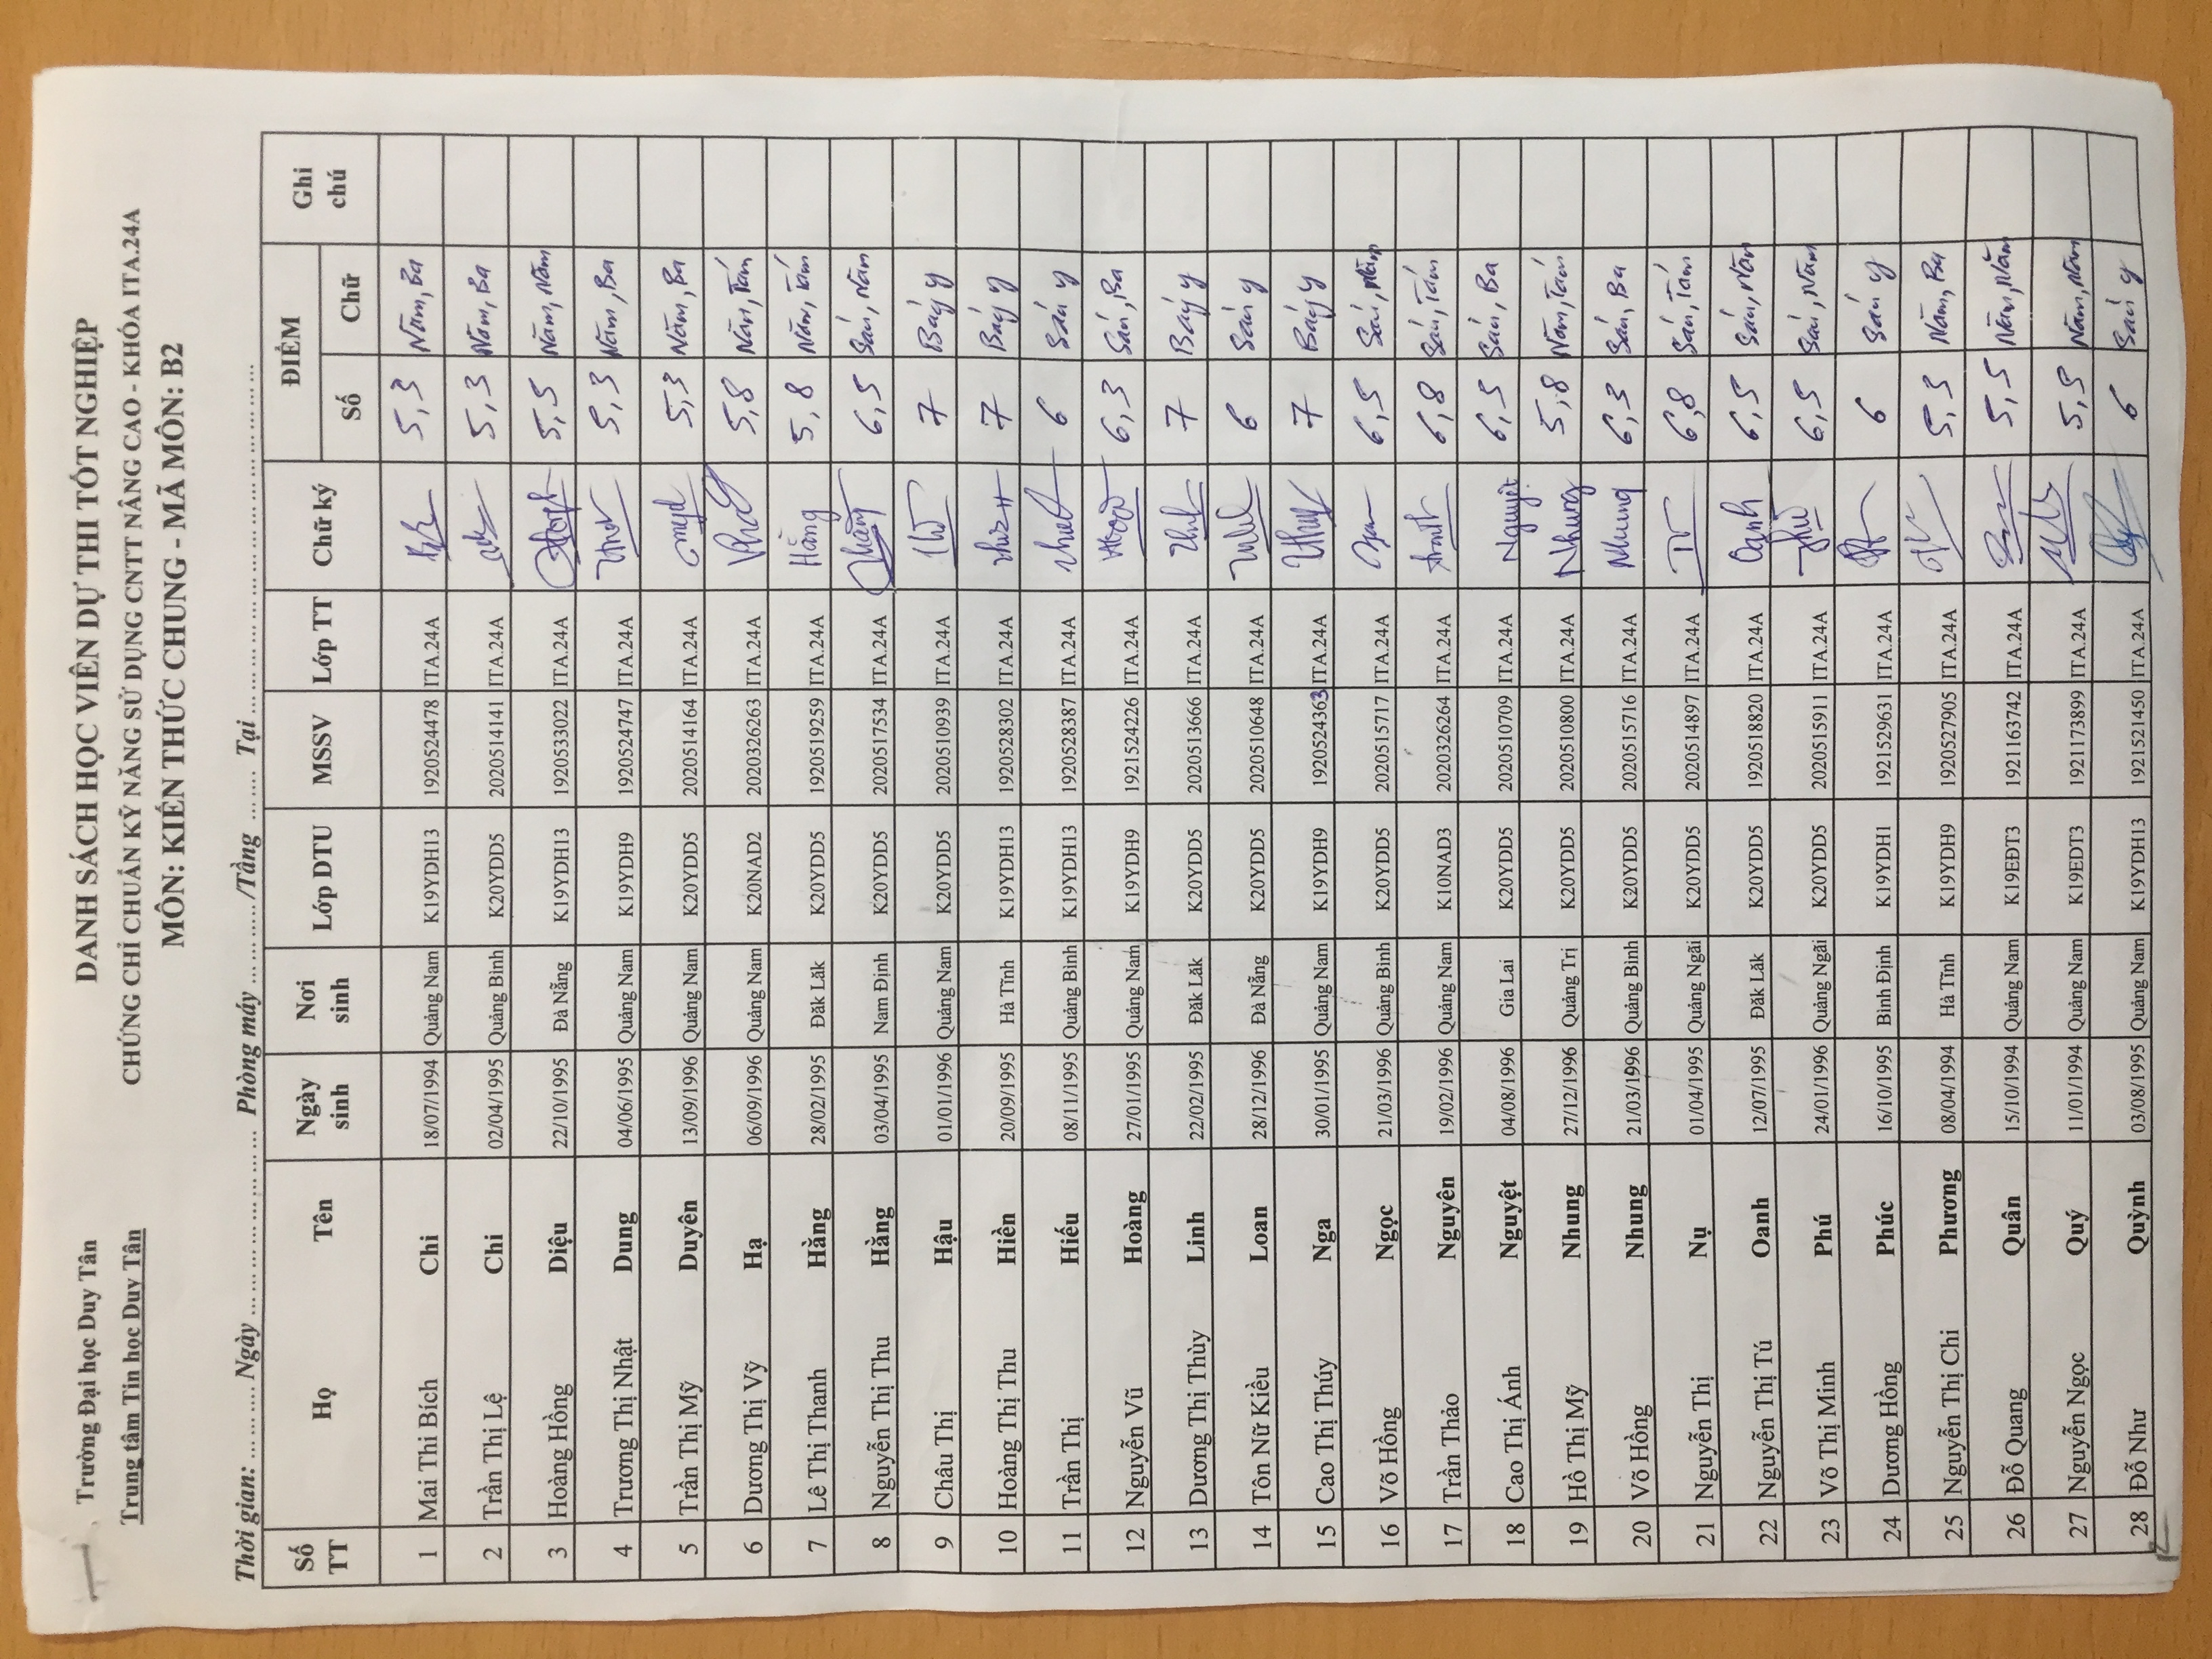 Trường Đại học Duy Tân
Trung tâm Tin học Duy Tân
DANH SÁCH HỌC VIÊN DỰ THI TỐT NGHIỆP
CHỨNG CHỈ CHUẨN KỸ NĂNG SỬ DỤNG CNTT NÂNG CAO - KHÓA ITA.24A
MÔN: KIẾN THỨC CHUNG - MÃ MÔN: B2
Thời gian: ............ Ngày ........................ Phòng máy ............/Tầng ........ Tại ................................................
Số TT Họ Tên Ngày sinh Nơi sinh Lớp DTU MSSV Lớp TT Chữ ký ĐIỂM Ghi chú
Số Chữ
1 Mai Thi Bích Chi 18/07/1994 Quảng Nam K19YDH13 1920524478 ITA.24A 5,3 Năm, Ba
2 Trần Thị Lệ Chi 02/04/1995 Quảng Bình K20YDD5 2020514141 ITA.24A 5,3 Năm, Ba
3 Hoàng Hồng Diệu 22/10/1995 Đà Nẵng K19YDH13 1920533022 ITA.24A 5,5 Năm, Năm
4 Trương Thị Nhật Dung 04/06/1995 Quảng Nam K19YDH9 1920524747 ITA.24A 5,3 Năm, Ba
5 Trần Thị Mỹ Duyên 13/09/1996 Quảng Nam K20YDD5 2020514164 ITA.24A 5,3 Năm, Ba
6 Dương Thị Vỹ Hạ 06/09/1996 Quảng Nam K20NAD2 2020326263 ITA.24A 5,8 Năm, Tám
7 Lê Thị Thanh Hằng 28/02/1995 Đăk Lăk K20YDD5 1920519259 ITA.24A Hằng 5,8 Năm, Tám
8 Nguyễn Thị Thu Hằng 03/04/1995 Nam Định K20YDD5 2020517534 ITA.24A Hằng 6,5 Sáu, Năm
9 Châu Thị Hậu 01/01/1996 Quảng Nam K20YDD5 2020510939 ITA.24A 7 Bảy y
10 Hoàng Thị Thu Hiền 20/09/1995 Hà Tĩnh K19YDH13 1920528302 ITA.24A 7 Bảy y
11 Trần Thị Hiếu 08/11/1995 Quảng Bình K19YDH13 1920528387 ITA.24A 6 Sáu y
12 Nguyễn Vũ Hoàng 27/01/1995 Quảng Nam K19YDH9 1921524226 ITA.24A 6,3 Sáu, Ba
13 Dương Thị Thùy Linh 22/02/1995 Đăk Lăk K20YDD5 2020513666 ITA.24A 7 Bảy y
14 Tôn Nữ Kiều Loan 28/12/1996 Đà Nẵng K20YDD5 2020510648 ITA.24A 6 Sáu y
15 Cao Thị Thúy Nga 30/01/1995 Quảng Nam K19YDH9 1920524363 ITA.24A 7 Bảy y
16 Võ Hồng Ngọc 21/03/1996 Quảng Bình K20YDD5 2020515717 ITA.24A 6,5 Sáu, Năm
17 Trần Thảo Nguyên 19/02/1996 Quảng Nam K10NAD3 2020326264 ITA.24A 6,8 Sáu, Tám
18 Cao Thị Ánh Nguyệt 04/08/1996 Gia Lai K20YDD5 2020510709 ITA.24A Nguyệt 6,3 Sáu, Ba
19 Hồ Thị Mỹ Nhung 27/12/1996 Quảng Trị K20YDD5 2020510800 ITA.24A Nhung 5,8 Năm, Tám
20 Võ Hồng Nhung 21/03/1996 Quảng Bình K20YDD5 2020515716 ITA.24A Nhung 6,3 Sáu, Ba
21 Nguyễn Thị Nụ 01/04/1995 Quảng Ngãi K20YDD5 2020514897 ITA.24A 6,8 Sáu, Tám
22 Nguyễn Thị Tú Oanh 12/07/1995 Đăk Lăk K20YDD5 1920518820 ITA.24A Oanh 6,5 Sáu, Năm
23 Võ Thị Minh Phú 24/01/1996 Quảng Ngãi K20YDD5 2020515911 ITA.24A Phú 6,5 Sáu, Năm
24 Dương Hồng Phúc 16/10/1995 Bình Định K19YDH1 1921529631 ITA.24A 6 Sáu y
25 Nguyễn Thị Chi Phương 08/04/1994 Hà Tĩnh K19YDH9 1920527905 ITA.24A 5,3 Năm, Ba
26 Đỗ Quang Quân 15/10/1994 Quảng Nam K19EĐT3 1921163742 ITA.24A 5,5 Năm, Năm
27 Nguyễn Ngọc Quý 11/01/1994 Quảng Nam K19EĐT3 1921173899 ITA.24A 5,5 Năm, Năm
28 Đỗ Như Quỳnh 03/08/1995 Quảng Nam K19YDH13 1921521450 ITA.24A 6 Sáu y